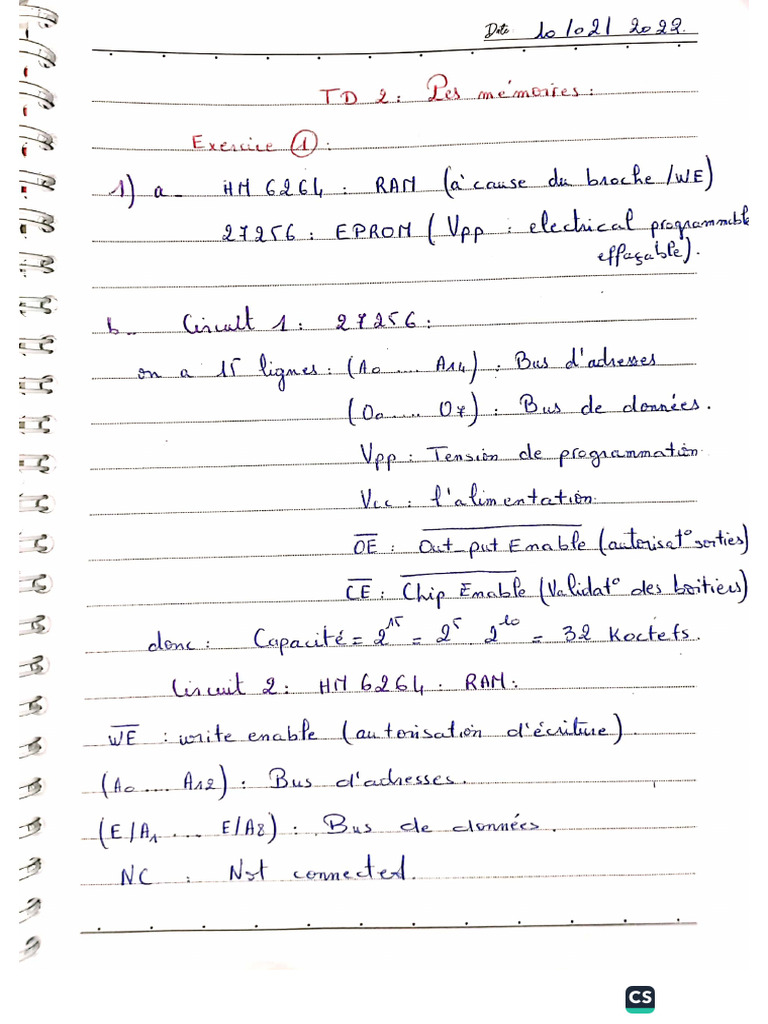 Date 10/02/2022.
TD 2: Les mémoires:
Exercice ①:
1) a_ HM 6264 : RAM (à cause du broche /WE)
27256 : EPROM (Vpp : electrical programmable
effaçable).
b_ Circuit 1: 27256:
on a 15 lignes: (A0 .... A14) : Bus d'adresses
(O0 ..... O7) : Bus de données.
Vpp : Tension de programmation
Vcc : l'alimentation.
O̅E̅ : Out_put Enable (autorisat° sorties)
C̅E̅ : Chip Enable (Validat° des boitiers)
donc : Capacité = 2¹⁵ = 2⁵ 2¹⁰ = 32 Koctets.
Circuit 2: HM 6264 : RAM:
W̅E̅ : write enable (autorisation d'écriture).
(A0 .... A12) : Bus d'adresses.
(E/A1 .... E/A8) : Bus de données.
NC : Not connected.
CS